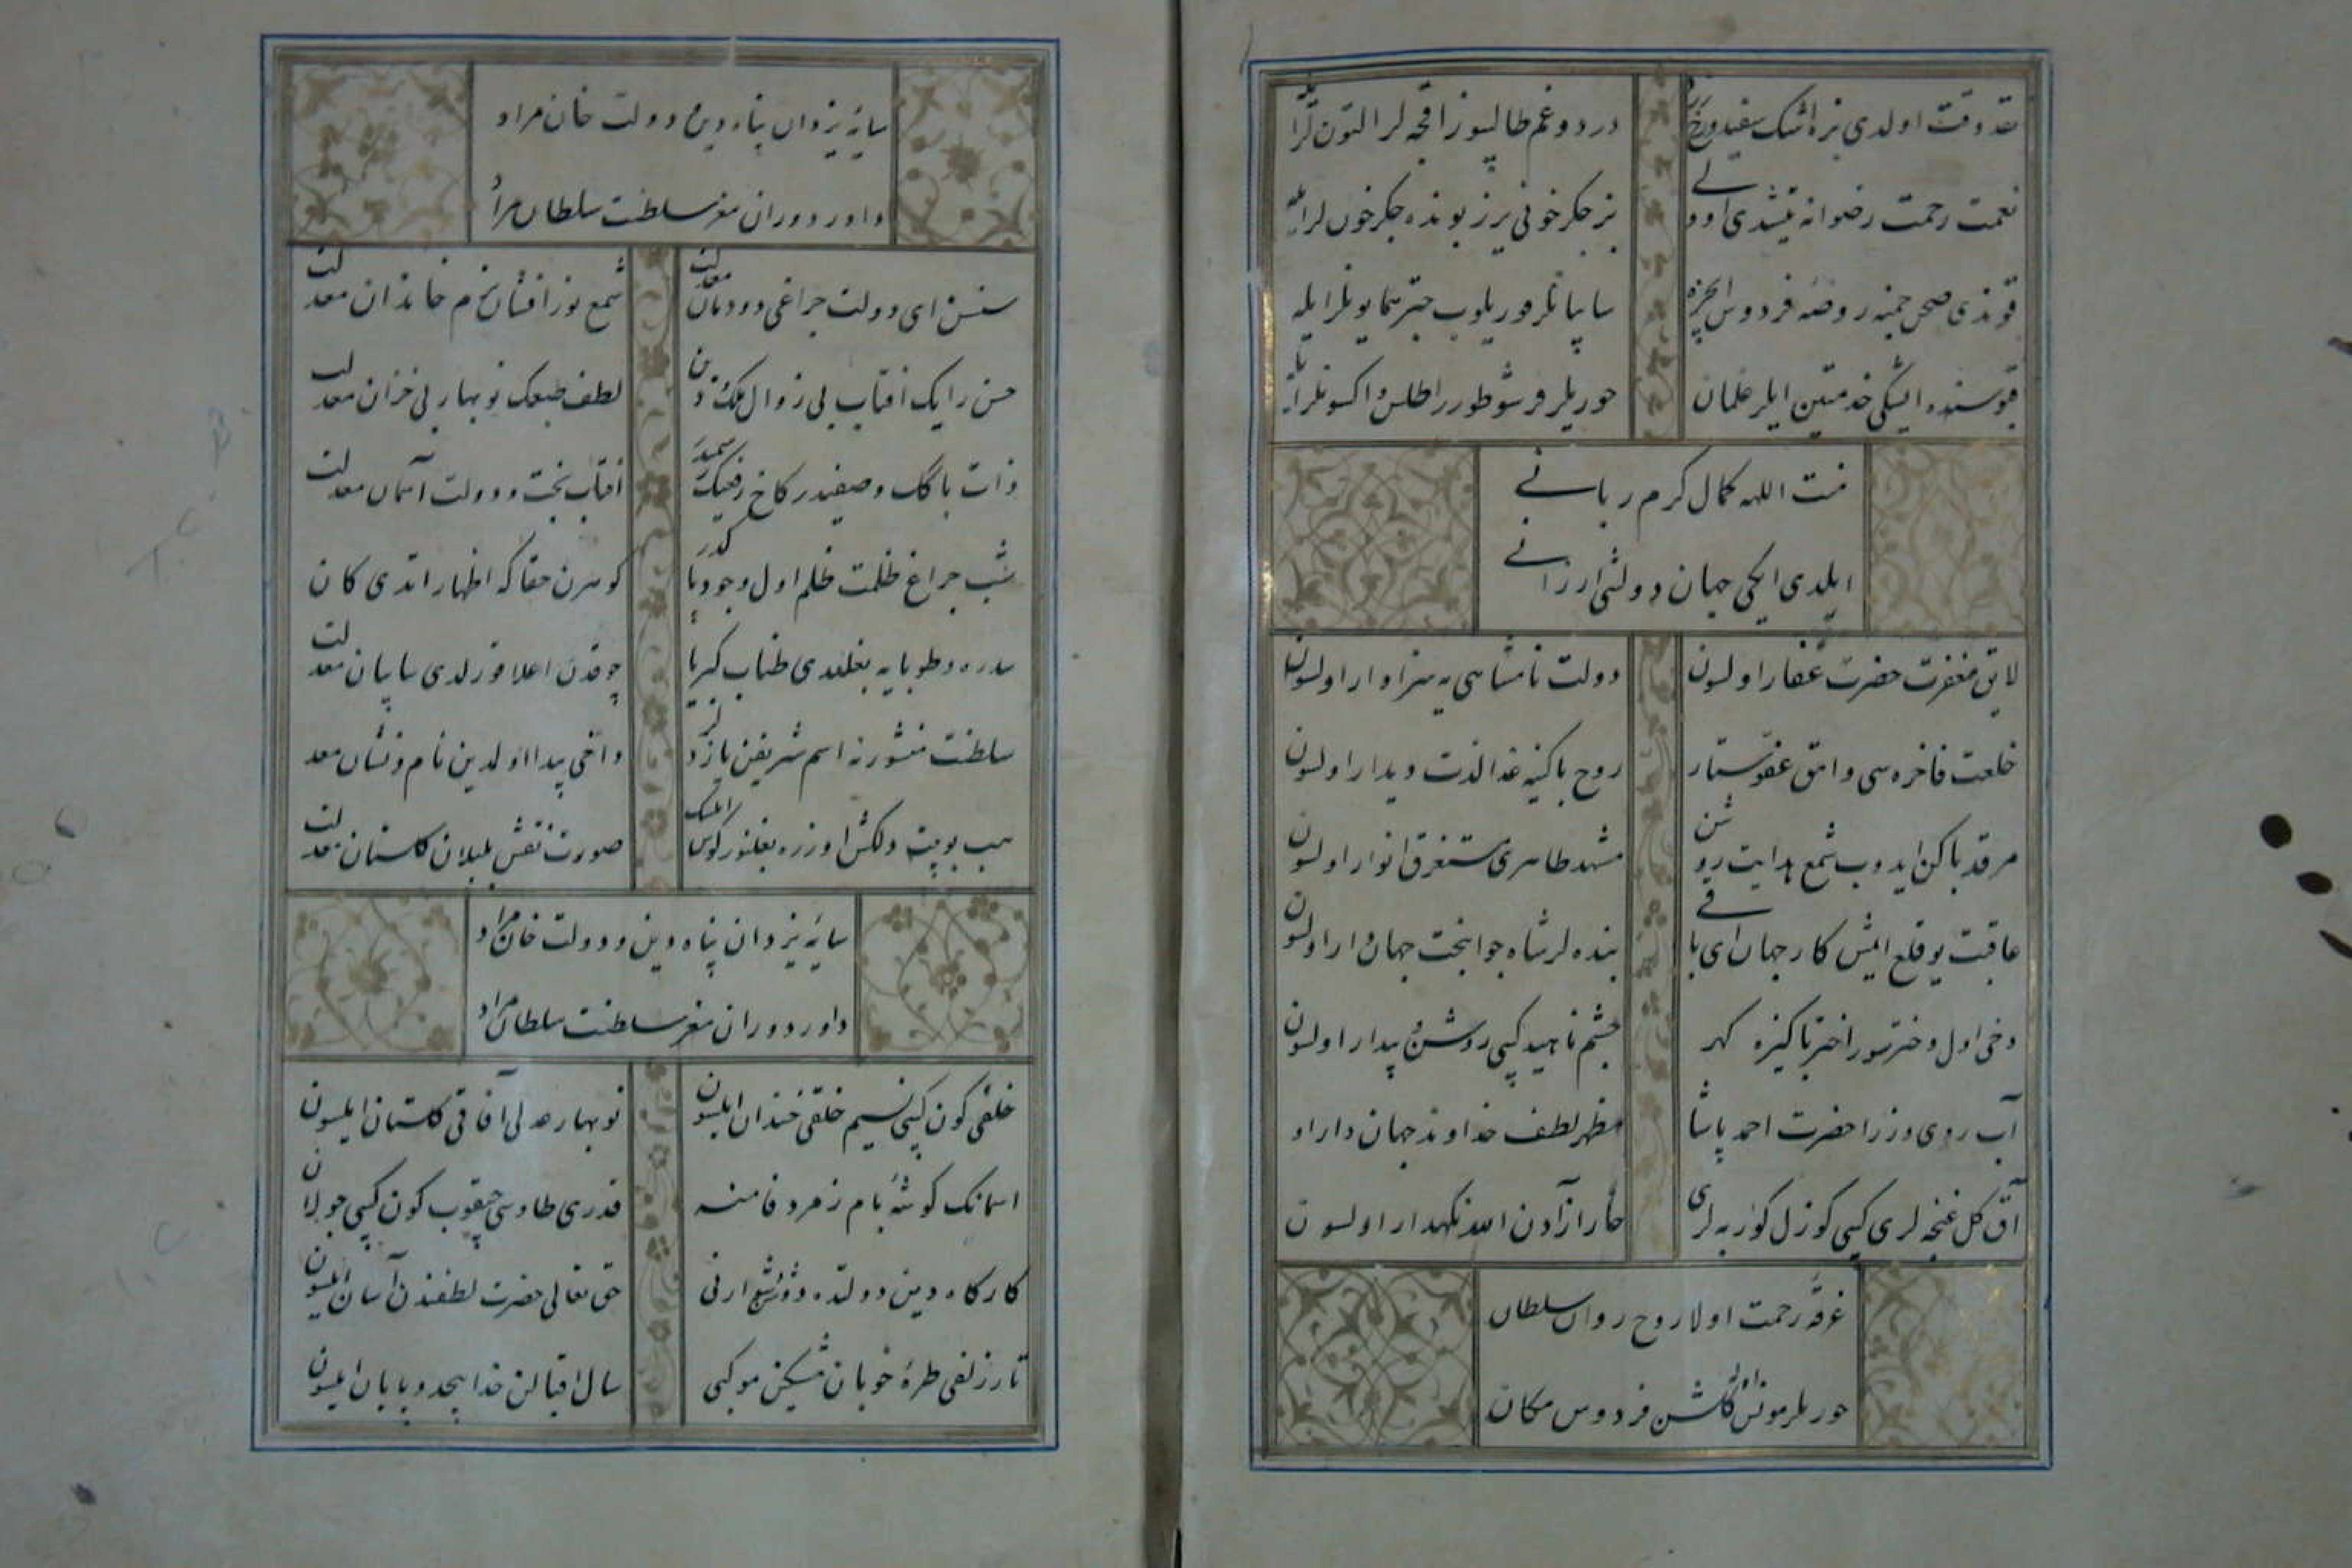 نقد وقت اولدی بزه اشک سفید و رخ زرد
درد و غم طالیوز اقچه لر التون لرله
نعمت رحمت رضوانه یتشدی اول
بز جکر خونی یرز بونده جکر خون لرله
قوندی صحن چمنه روضه فردوس
سایبانلر قوریلوب چتر همایونلر ایله
قپوسنده ایشکی خدمتین ایلر غلمان
حوریلر فرشو طورر اطلس و اکسونلرله
منت الله کمال کرم ربانی
ایلدی ایکی جهان دولتی ارزانی
لایق مغفرت حضرت غفار اولسون
دولت نامتناهی یه سزاوار اولسون
خلعت فاخره سی دامن عفو ستار
روح پاکینه غدا لذت دیدار اولسون
مرقد پاکن ایدوب شمع هدایت روشن
مشهد طاهری مستغرق انوار اولسون
عاقبت بو قلع ایمش کار جهان ای باقی
بنده لر شاه جوانبخت جهاندار اولسون
دخی اول دختر سور اختر پاکیزه کهر
چشم ناهید کبی روشن و بیدار اولسون
آب روی وزرا حضرت احمد پاشا
مظهر لطف خداوند جهاندار اول
آق کل غنچه لری کبی کوزل کوزیه لری
خار ازاردن الله نکهدار اولسون
غرقه رحمت اولا روح روان سلطان
حوریلر مونس اوله کلشن فردوس مکان
سایه یزدان پناه دین و دولت خان مراد
داور دوران مغز سلطنت سلطان مراد
سنسن ای دولت چراغی دودمان معدلت
شمع نور افشان بزم خاندان معدلت
حسن رایک افتاب بی زوال ملک و دین
لطف طبعک نوبهار بی خزان معدلت
ذات پاکک وصفیدر کاخ رفیعک
افتاب بخت و دولت آسمان معدلت
شب چراغ ظلمت ظلم اول وجود پاکدر
کوهرن حقا که اظهار اتدی کان
سدره و طوبایه بغلندی طناب کبریا
چوقدن اعلا قورلدی سایبان معدلت
سلطنت منشورنه اسم شریفن یازدلر
داخی پیدا اولمدین نام و نشان معدلت
هب بو بیت دلکش اوزره بغلنور کوس
صورت نقش بلبلان کلستان معدلت
سایه یزدان پناه دین و دولت خان مراد
داور دوران مغز سلطنت سلطان مراد
خلقی کون کبی نسیم خلقی خندان ایلسون
نوبهار عدلی آفاقی کلستان ایلسون
اسمانک کوشه بام زمرد فامنه
قدری طاوسی چیقوب کون کبی جولان
کارکاه دین و دولتده دوشوار نی
حق تعالی حضرت لطفندن آسان ایلسون
تار زلفی طره خوبان مشکین مو کبی
سال اقبالن خدا بیحد و پایان ایلسون